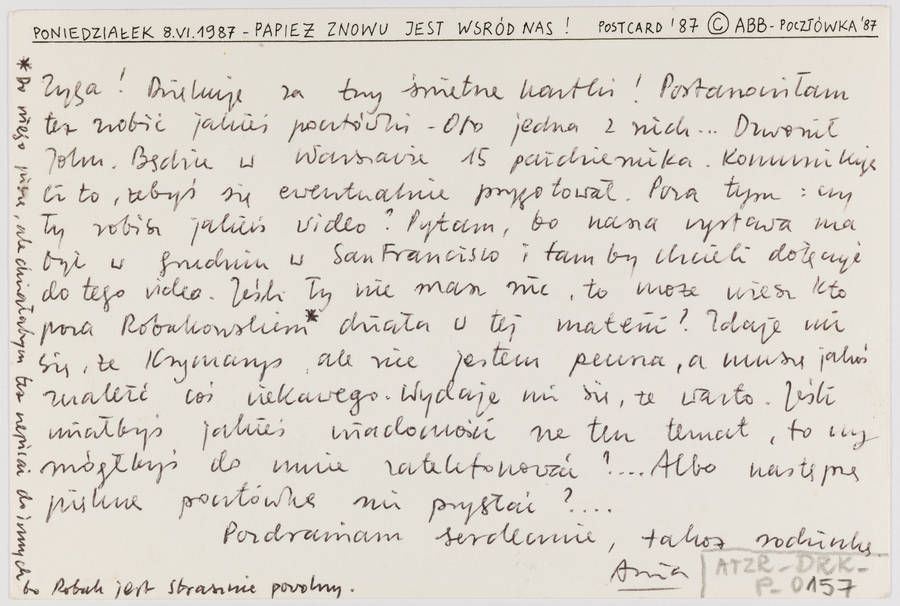 PONIEDZIAŁEK 8.VI.1987 - PAPIEŻ ZNOWU JEST WŚRÓD NAS! POSTCARD '87 © ABB - POCZTÓWKA '87
Zyga! Dziękuję za trzy świetne kartki! Postanowiłam
też zrobić jakieś pocztówki - Oto jedna z nich... Dzwonił
John. Będzie w Warszawie 15 października. Komunikuję
Ci to, żebyś się ewentualnie przygotował. Poza tym: czy
Ty robisz jakieś video? Pytam, bo nasza wystawa ma
być w grudniu w San Francisco i tam by chcieli dołączyć
do tego video. Jeśli Ty nie masz nic, to może wiesz kto
poza Robakowskim* działa w tej materii? Zdaje mi
się, że Krzymanys, ale nie jestem pewna, a muszę jakoś
znaleźć coś ciekawego. Wydaje mi się, że warto. Jeśli
miałbyś jakieś wiadomości na ten temat, to czy
mógłbyś do mnie zatelefonować?... Albo następną
piękną pocztówkę mi przysłać?....
Pozdrawiam serdecznie, także rodzinkę.
Ania
* Do niego piszę, ale chciałabym też napisać do innych
bo Robak jest strasznie powolny.
ATZR-DRK-
P-0157